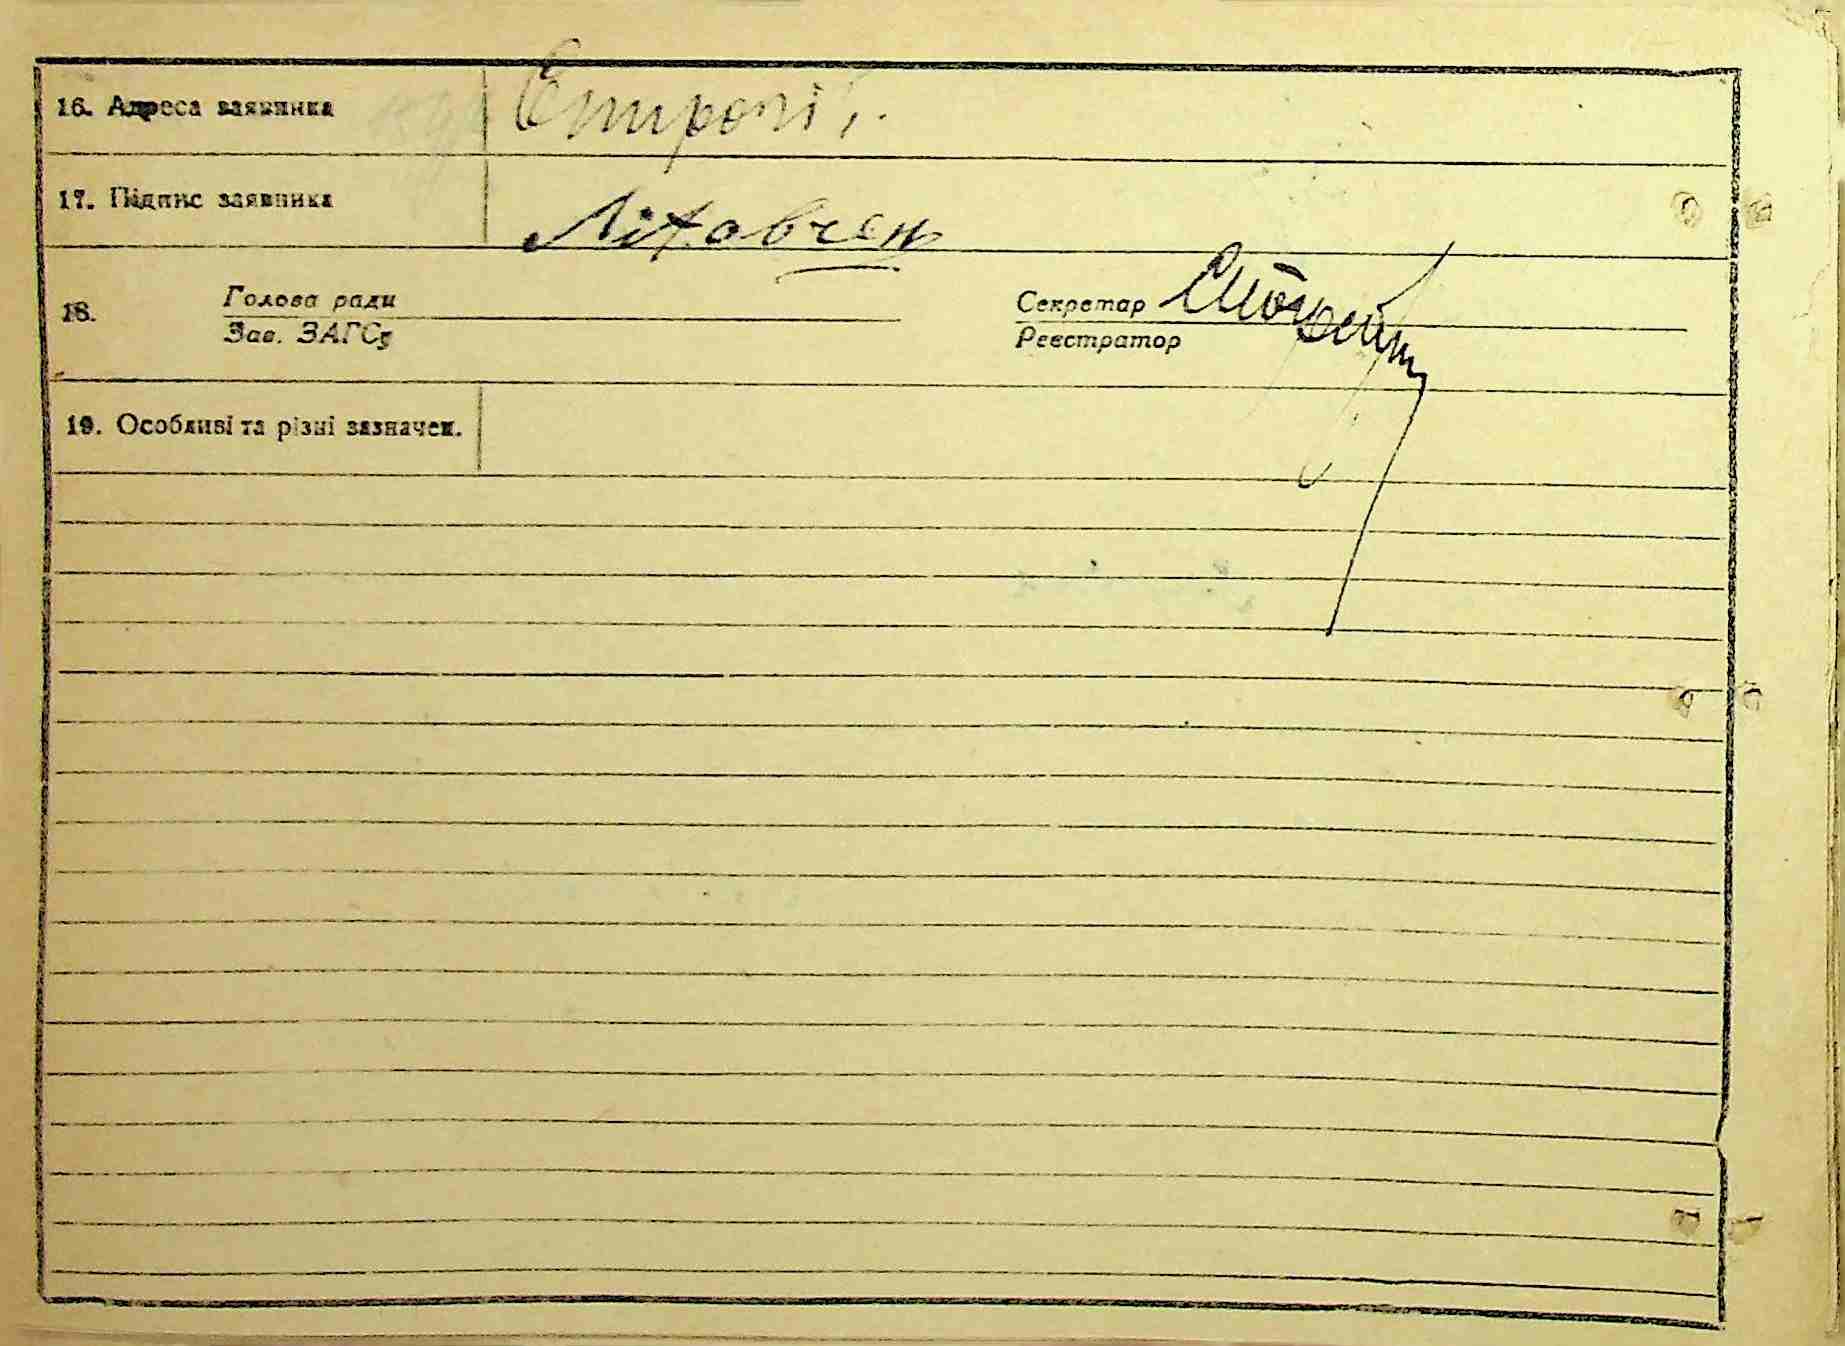 16. Адреса заявника
17. Підпис заявника Літовчен
18. Голова ради Секретар
Зав. ЗАГСу Реєстратор
19. Особливі та різні зазначен.